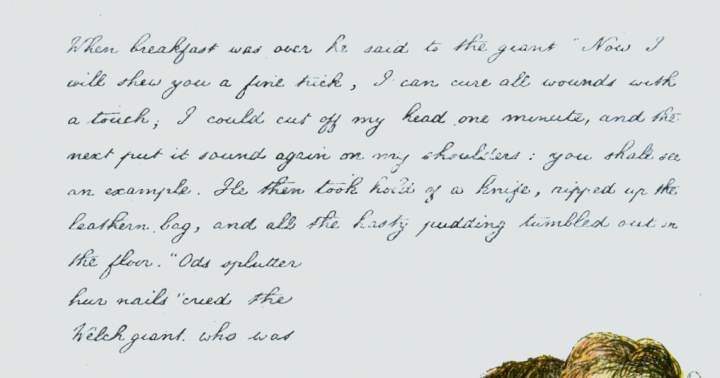 When breakfast was over he said to the giant "Now I
will shew you a fine trick, I can cure all wounds with
a touch; I could cut off my head one minute, and the
next put it sound again on my shoulders: you shall see
an example. He then took hold of a knife, ripped up the
leathern bag, and all the hasty pudding tumbled out on
the floor. "Ods splutter
hur nails" cried the
Welch giant. who was